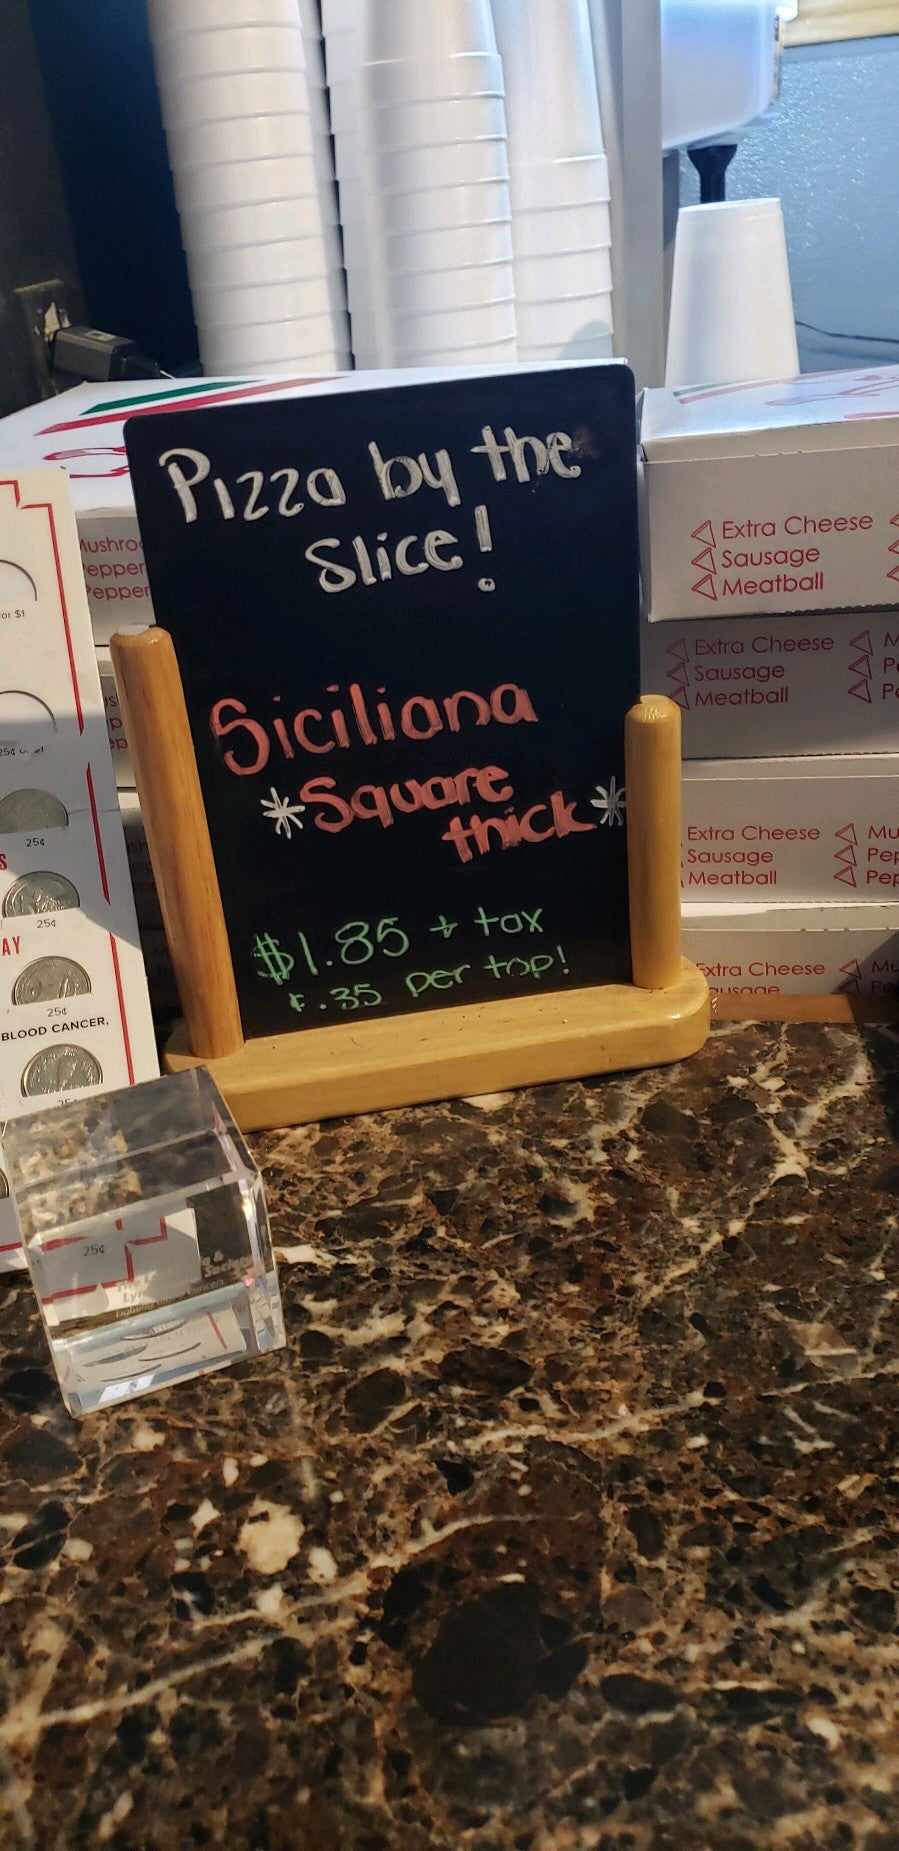 Pizza by the
Slice!
Siciliana
*Square
thick*
$1.85 + tax
.35 per top!
Extra Cheese
Sausage
Meatball
Extra Cheese
Sausage
Meatball
Extra Cheese
Sausage
Meatball
Extra Cheese
or $1
25¢
25¢
AY
25¢
BLOOD CANCER,
25¢